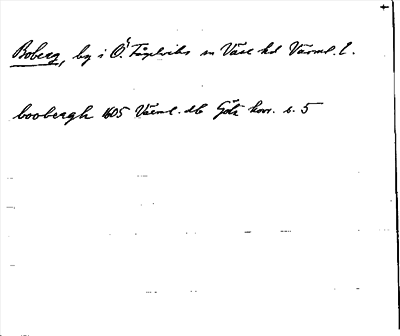 Boberg, by i Ö. Fågelviks sn Väse hd Värml. l.
boobergh 1605 Värml. db Göta hovr. s. 5